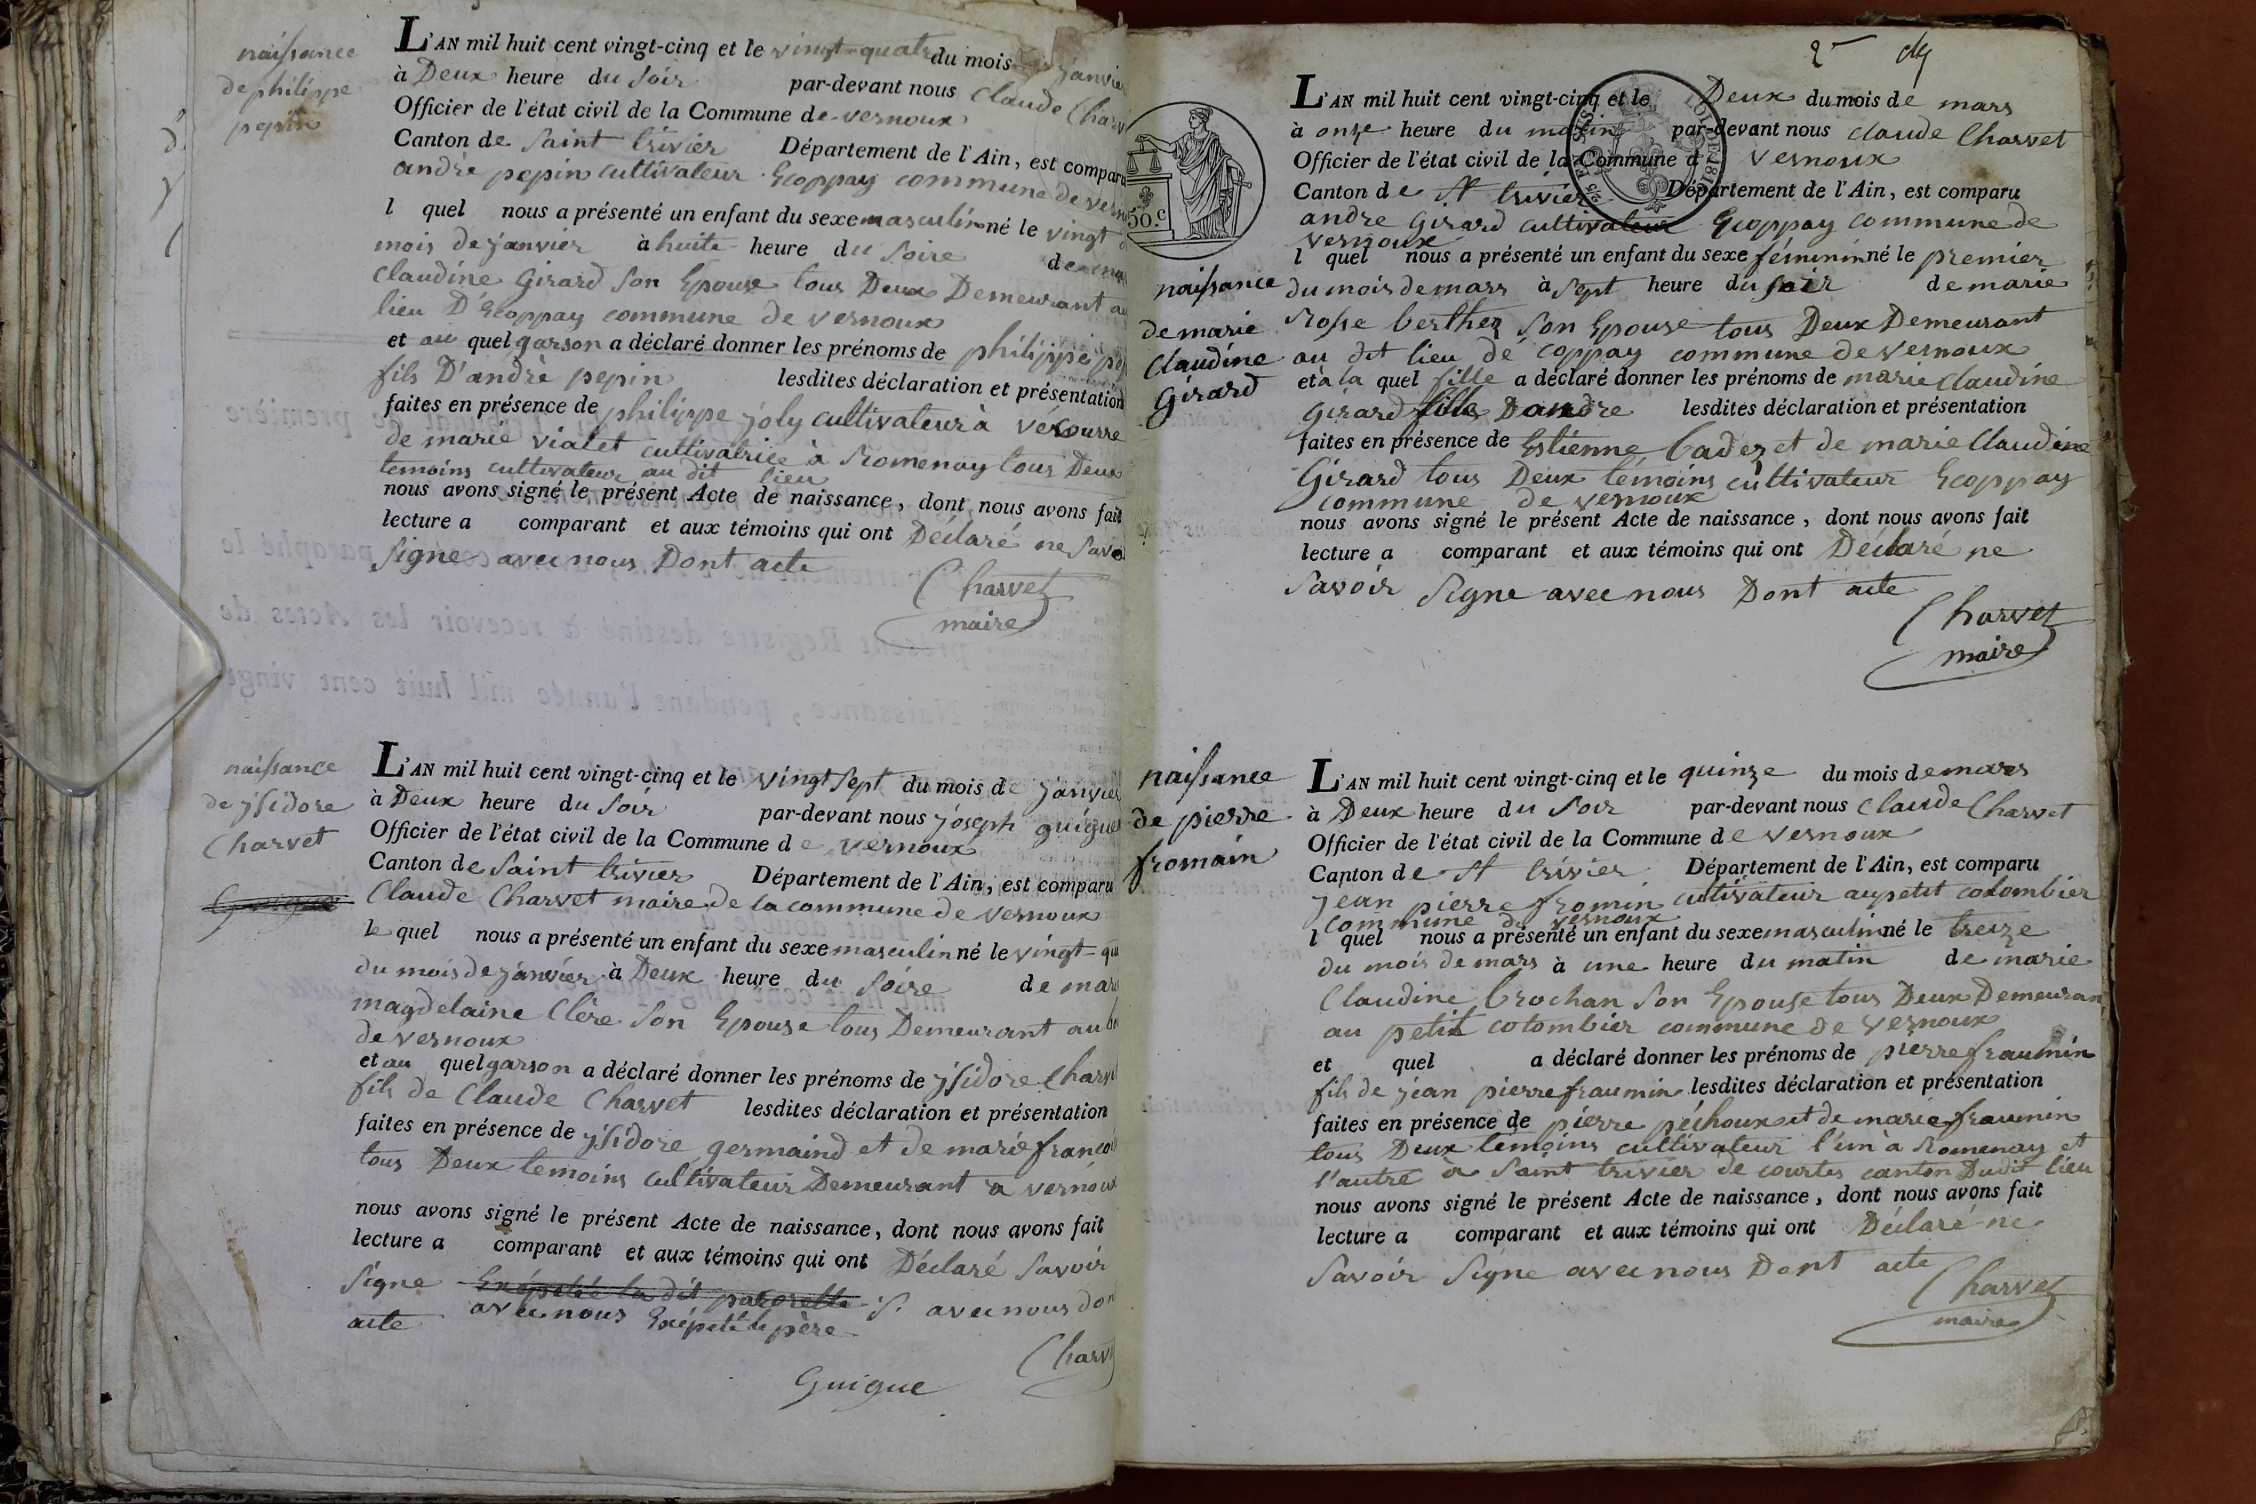 naissance
de philippe
pepin
L'AN mil huit cent vingt-cinq et le vingt-quatre du mois de janvier
à Deux heure du soir par-devant nous Claude Charv
Officier de l'état civil de la Commune de vernoux
Canton de Saint trivier Département de l'Ain, est comparu
andrè pepin cultivateur Ecoppay commune de vern
l quel nous a présenté un enfant du sexe masculin né le vingt
mois de janvier à huite heure du soire de
Claudine Girard son Epouse tous Deux Demeurant au
lieu D'Ecoppay commune de vernoux
et au quel garson a déclaré donner les prénoms de philippe pep
fils D'andrè pepin lesdites déclaration et présentation
faites en présence de philippe joly cultivateur à vécourre
de marie vialet cultivatrice à Romenay tous Deux
temoins cultivateur au dit lieu
nous avons signé le présent Acte de naissance, dont nous avons fait
lecture a comparant et aux témoins qui ont Déclaré ne Savo
Signe avec nous Dont acte
Charvet
maire
naissance
de jsidore
Charvet
L'AN mil huit cent vingt-cinq et le vingt sept du mois de janvier
à Deux heure du Soir par-devant nous joseph guigue
Officier de l'état civil de la Commune de vernoux
Canton de Saint trivier Département de l'Ain, est comparu
Claude Charvet maire de la commune de vernoux
le quel nous a présenté un enfant du sexe masculin né le vingt-qu
du mois de janvier à Deux heure du Soire de mar
magdelaine Clère Son Epouse tous Demeurant au
de vernoux
et au quel garson a déclaré donner les prénoms de jsidore Charv
fils de Claude Charvet lesdites déclaration et présentation
faites en présence de jsidore germaind et de marie franco
tous Deux temoins cultivateur Demeurant a vernoux
nous avons signé le présent Acte de naissance, dont nous avons fait
lecture a comparant et aux témoins qui ont Déclaré Savoir
Signe avec nous don
acte avec nous Exépeté le père
Charv
Guigue
2e
50.c
L'AN mil huit cent vingt-cinq et le Deux du mois de mars
à onze heure du matin par-devant nous Claude Charvet
Officier de l'état civil de la Commune d vernoux
Canton de St trivier Département de l'Ain, est comparu
andre Girard cultivateur Ecoppay commune de
vernoux
l quel nous a présenté un enfant du sexe féminin né le premier
du mois de mars à Sept heure du soir de marie
Rosse berthez Son Epouse tous Deux Demeurant
au dit lieu dé coppay commune de vernoux
et à la quel fille a déclaré donner les prénoms de marie Claudine
Girard fille D andre lesdites déclaration et présentation
faites en présence de Estienne Cadez et de marie Claudine
Girard tous Deux témoins cultivateur Ecoppay
commune de vernoux
nous avons signé le présent Acte de naissance, dont nous avons fait
lecture a comparant et aux témoins qui ont Déclaré ne
Savoir Signe avec nous Dont acte
Charvet
maire
naissance
de marie
Claudine
Girard
naissance
de pierre
fromain
L'AN mil huit cent vingt-cinq et le quinze du mois de mars
à Deux heure du Soir par-devant nous Claude Charvet
Officier de l'état civil de la Commune de vernoux
Canton de St trivier Département de l'Ain, est comparu
jean pierre fromin cultivateur au petit colombier
commune de vernoux
l quel nous a présenté un enfant du sexe masculin né le treize
du mois de mars à une heure du matin de marie
Claudine brochan Son Epouse tous Deux Demeuran
au petit colombier commune de vernoux
et quel a déclaré donner les prénoms de pierre fraumin
fils de jean pierre fraumin lesdites déclaration et présentation
faites en présence de pierre péchoux et de marie fraumin
tous Deux témoins cultivateur l'un à Romenay et
l'autre à Saint trivier de courtes canton Dudit lieu
nous avons signé le présent Acte de naissance, dont nous avons fait
lecture a comparant et aux témoins qui ont Déclaré ne
Savoir Signe avec nous Dont acte
Charvet
maire